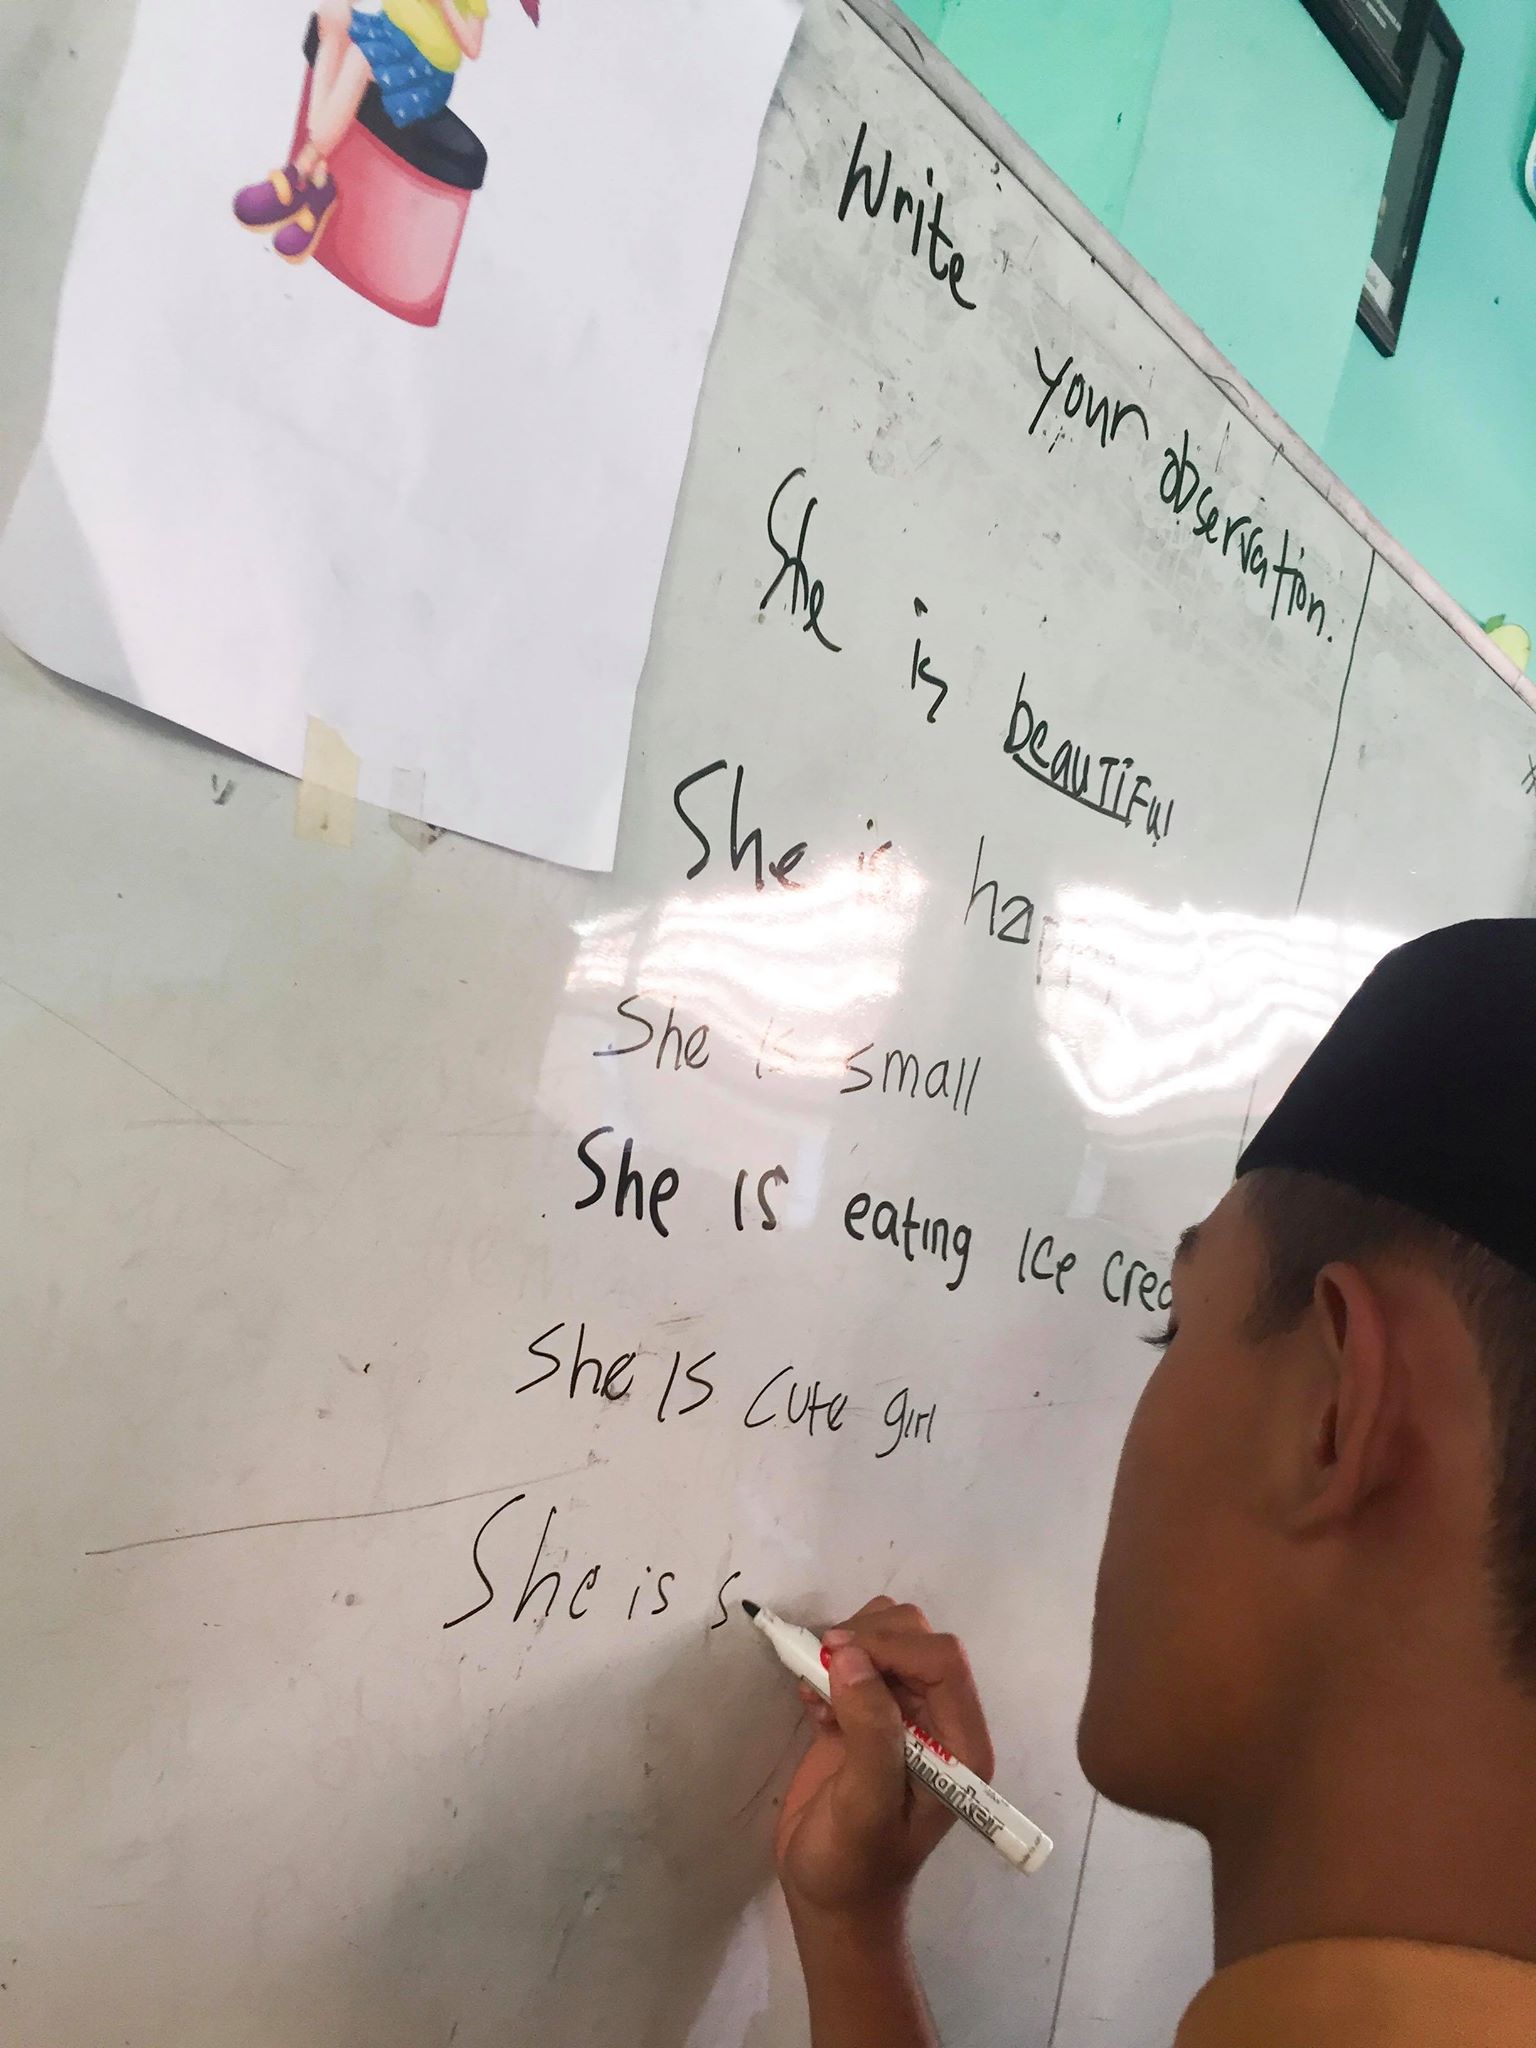 Write your observation.
She is beautiful
She is
She is small
She is eating ice
She is cute girl
She is s